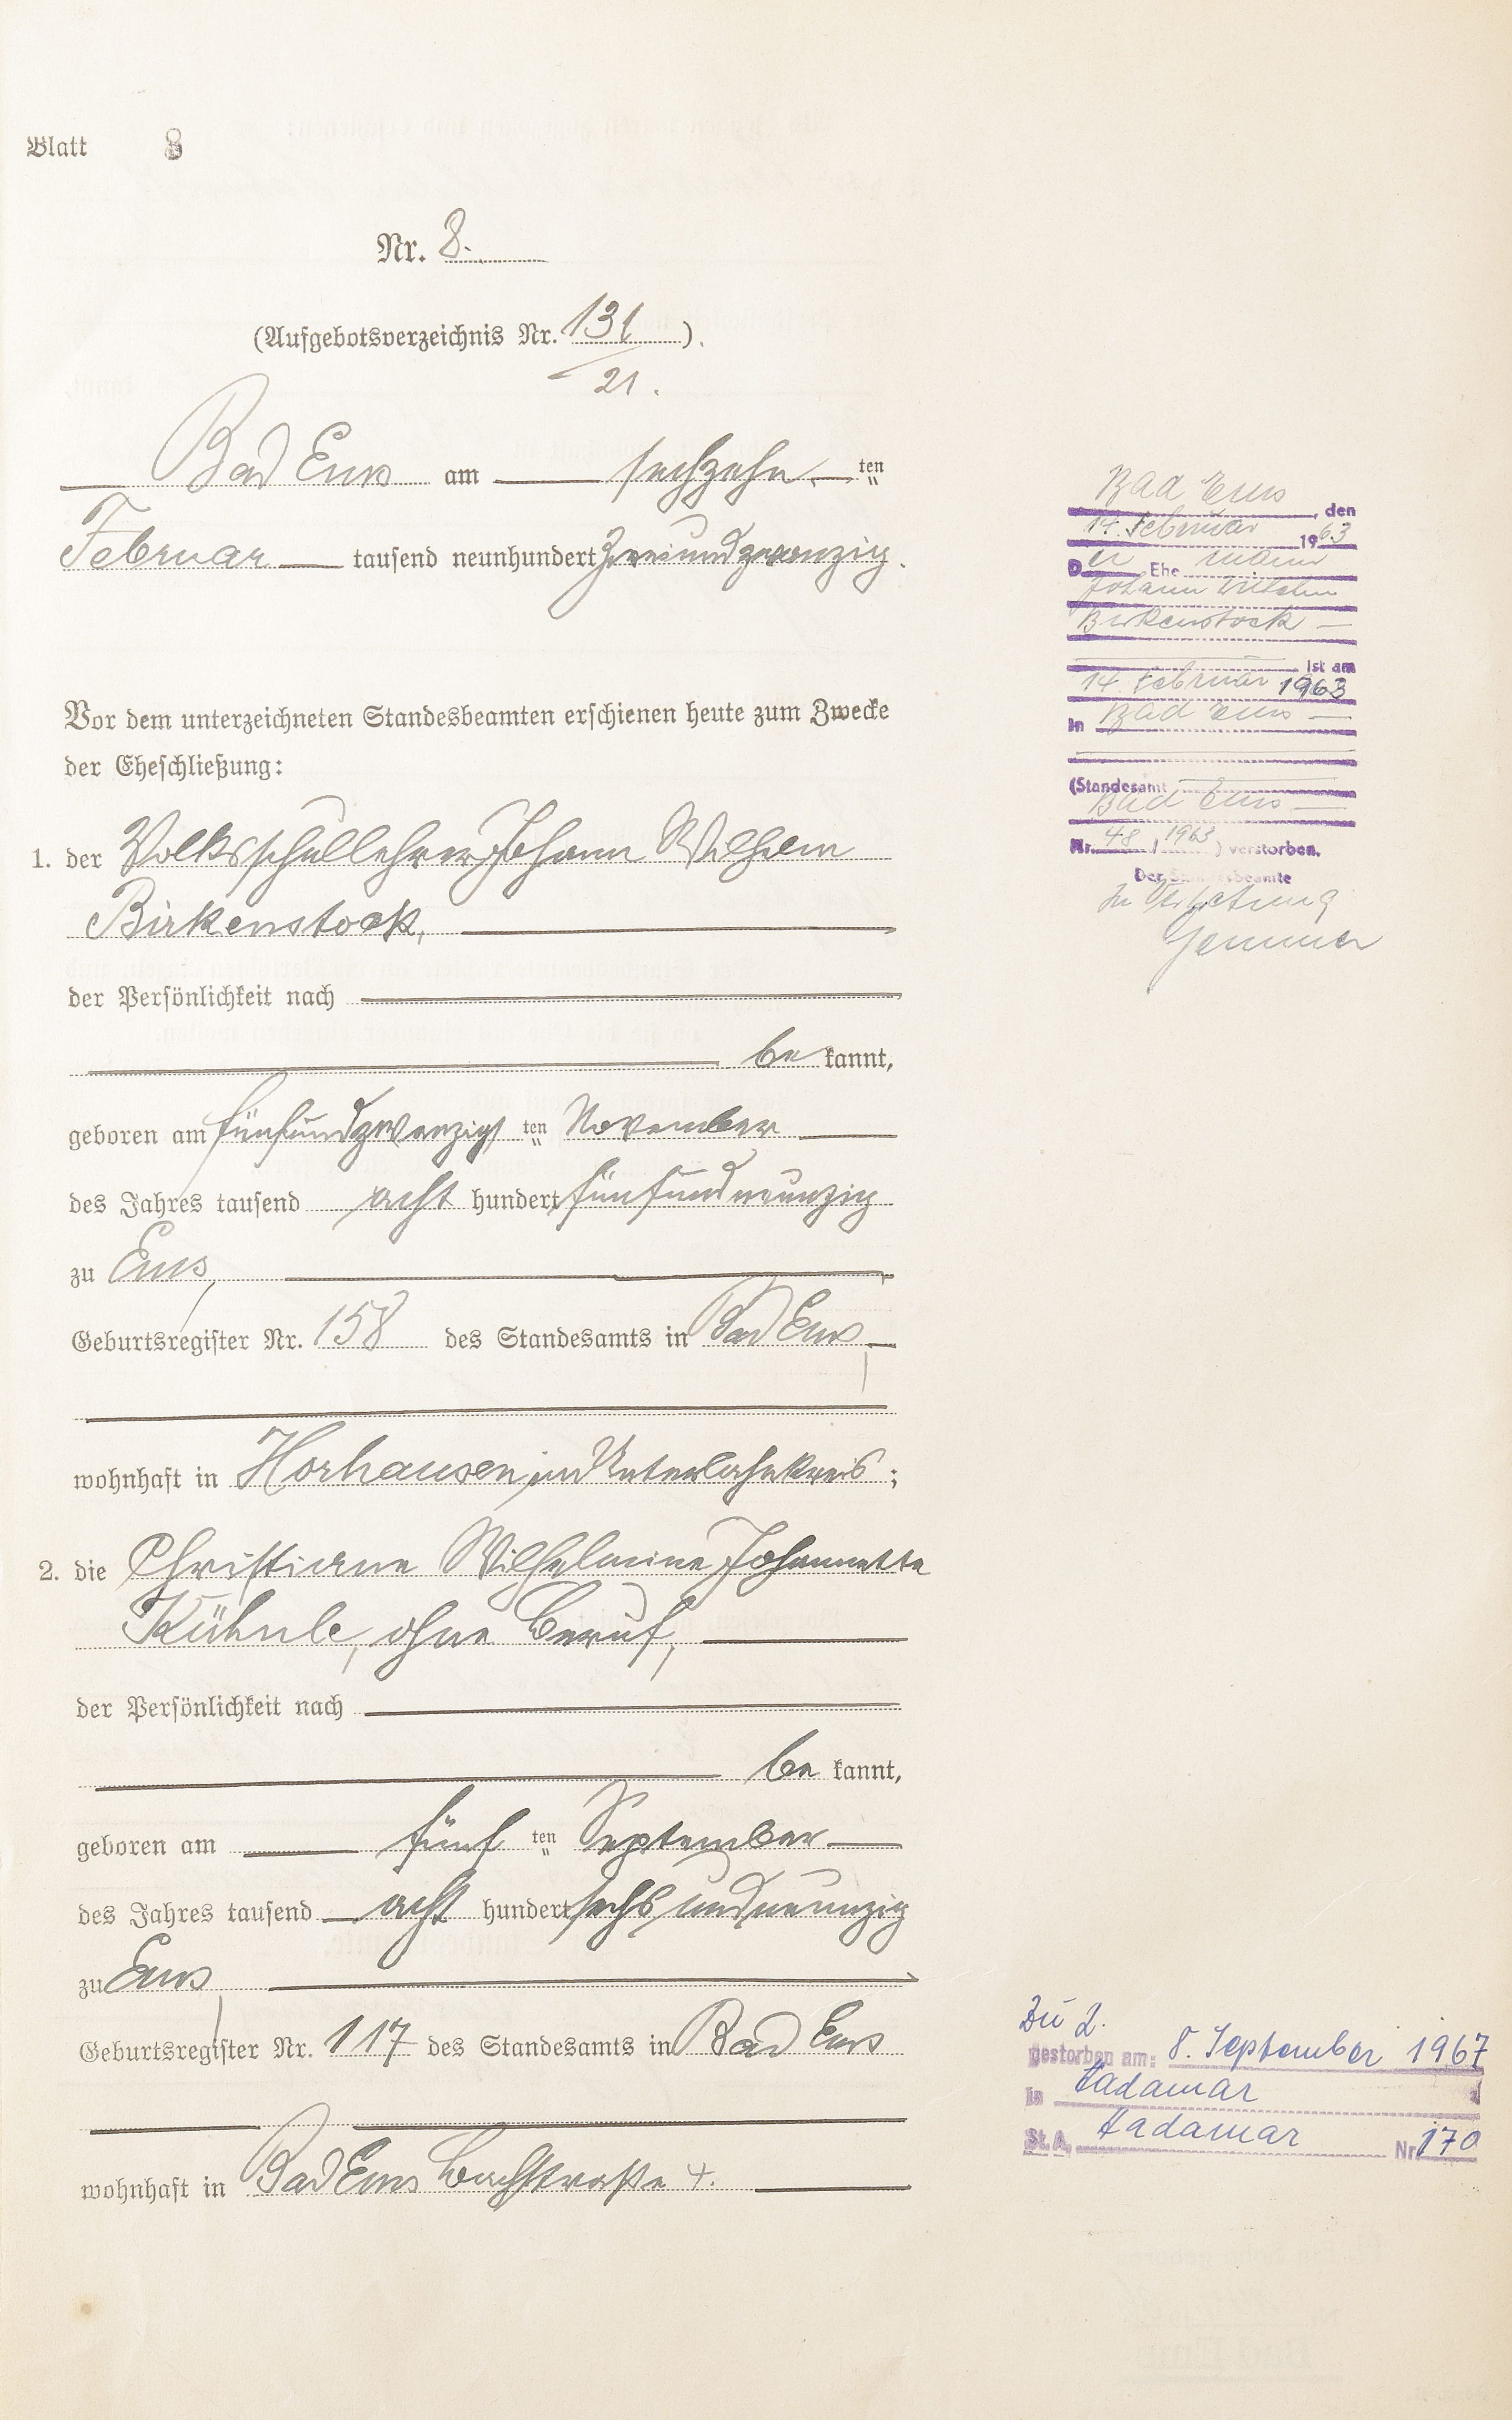 Blatt 8
Nr. 8.
(Aufgebotsverzeichnis Nr. 131
21. ).
Bad Ems am sechzehn ten
Februar tausend neunhundert zweiundzwanzig.
Vor dem unterzeichneten Standesbeamten erschienen heute zum Zwecke
der Eheschließung:
1. der Volksschullehrer Johann Wilhelm
Birkenstock,
der Persönlichkeit nach
be kannt,
geboren am fünfundzwanzigs ten November
des Jahres tausend acht hundert fünfundneunzig
zu Ems,
Geburtsregister Nr. 158 des Standesamts in Bad Ems,
wohnhaft in Horhausen, im Unterlahnkreis;
2. die Christiane Wilhelmine Johannette
Kühnle, ohne Beruf,
der Persönlichkeit nach
be kannt,
geboren am fünf ten September
des Jahres tausend acht hundert sechsundneunzig
zu Ems,
Geburtsregister Nr. 117 des Standesamts in Bad Ems
wohnhaft in Bad Ems Bachstraße 4.
Bad Ems, den
14. Februar 1963
Der Ehe mann
Johann Wilhelm
Birkenstock
ist am
14. Februar 1963
in Bad Ems
(Standesamt
Bad Ems
Nr. 48 / 1963) verstorben.
Der Standesbeamte
In Vertretung
Zu 2.
gestorben am: 8. September 1967
in Hadamar
St. A. Hadamar Nr. 170